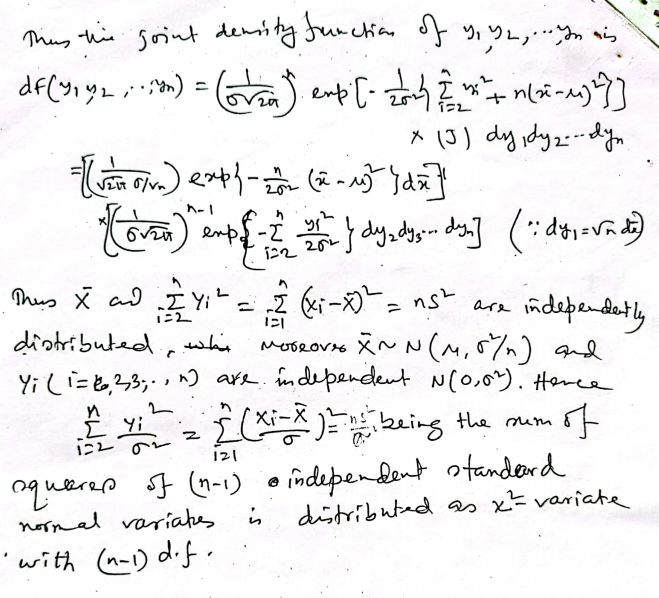 Thus the joint density function of y₁, y₂, ..., yₙ is
dF(y₁ y₂ ,..., yₙ) = (1/(σ√2π))ⁿ exp[-1/(2σ²){ Σᵢ₌₂ⁿ yᵢ² + n(x̄-μ)²}]
× |J| dy₁dy₂...dyₙ
= [(1/(√2π σ/√n)) exp{-n/(2σ²) (x̄-μ)²}dx̄]
×[(1/(σ√2π))ⁿ⁻¹ exp{-Σᵢ₌₂ⁿ yᵢ²/(2σ²)} dy₂dy₃...dyₙ] (∵ dy₁=√n dx̄)
Thus X̄ and Σᵢ₌₂ⁿ Yᵢ² = Σᵢ₌₁ⁿ (Xᵢ-X̄)² = ns² are independently
distributed, moreover X̄ ~ N(μ, σ²/n) and
Yᵢ (i=2,3,.., n) are independent N(0,σ²). Hence
Σᵢ₌₂ⁿ Yᵢ²/σ² = Σᵢ₌₁ⁿ ((Xᵢ-X̄)/σ)² = ns²/σ², being the sum of
squares of (n-1) independent standard
normal variates is distributed as χ²- variate
with (n-1) d.f.